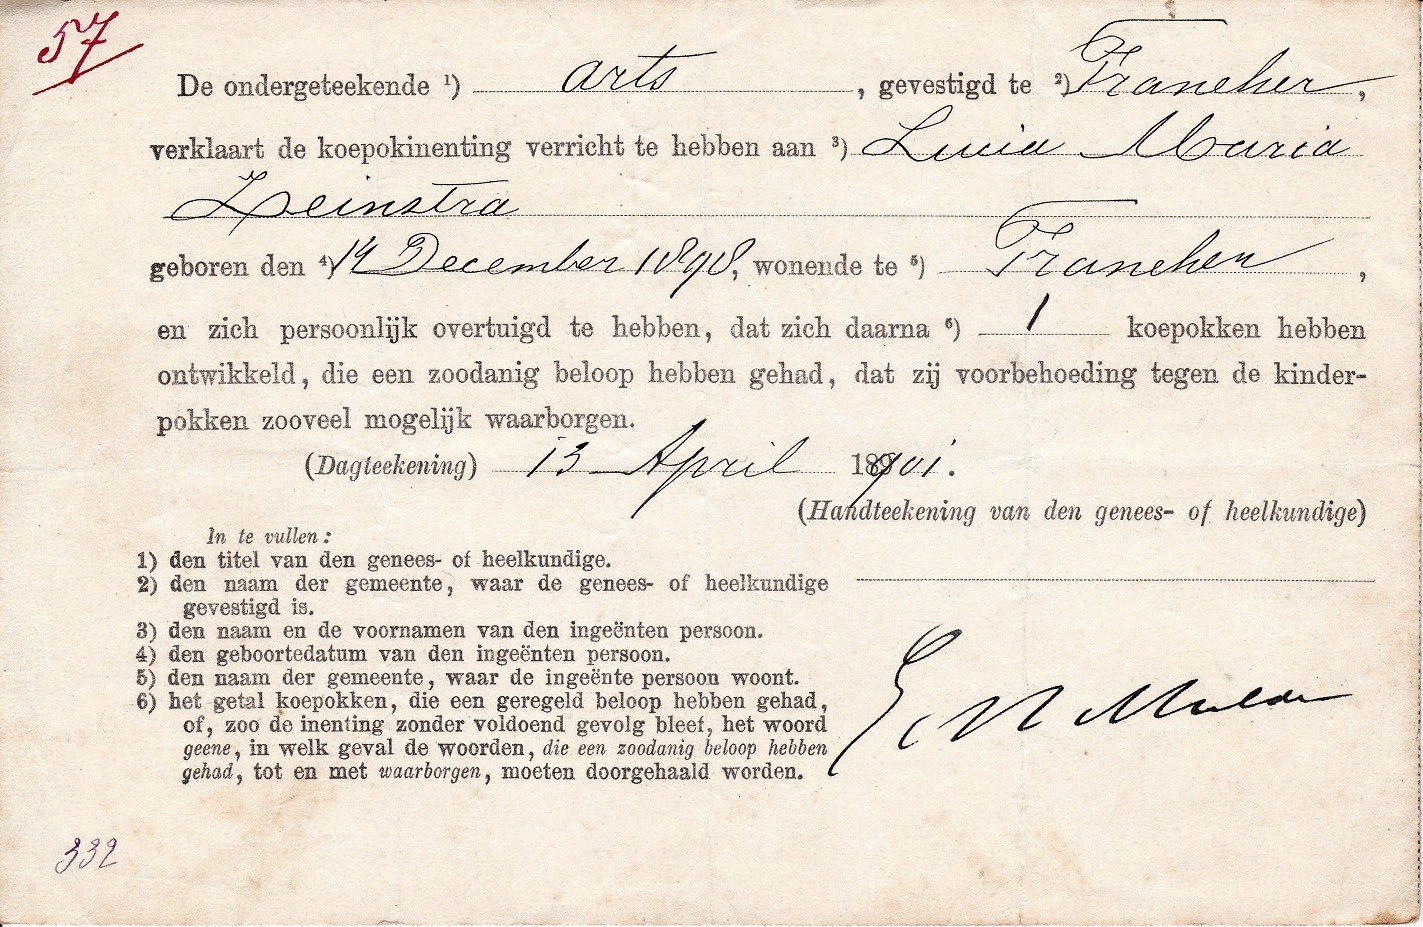 57
De ondergeteekende ¹) arts, gevestigd te ²) Franeker,
verklaart de koepokinenting verricht te hebben aan ³) Lucia Maria
Zeinstra
geboren den ⁴) 14 December 1898, wonende te ⁵) Franeker,
en zich persoonlijk overtuigd te hebben, dat zich daarna ⁶) 1 koepokken hebben
ontwikkeld, die een zoodanig beloop hebben gehad, dat zij voorbehoeding tegen de kinder-
pokken zooveel mogelijk waarborgen.
(Dagteekening) 13 April 1901.
(Handteekening van den genees- of heelkundige)
In te vullen:
1) den titel van den genees- of heelkundige.
2) den naam der gemeente, waar de genees- of heelkundige
gevestigd is.
3) den naam en de voornamen van den ingeënten persoon.
4) den geboortedatum van den ingeënten persoon.
5) den naam der gemeente, waar de ingeënte persoon woont.
6) het getal koepokken, die een geregeld beloop hebben gehad,
of, zoo de inenting zonder voldoend gevolg bleef, het woord
geene, in welk geval de woorden, die een zoodanig beloop hebben
gehad, tot en met waarborgen, moeten doorgehaald worden.
Mulder
332